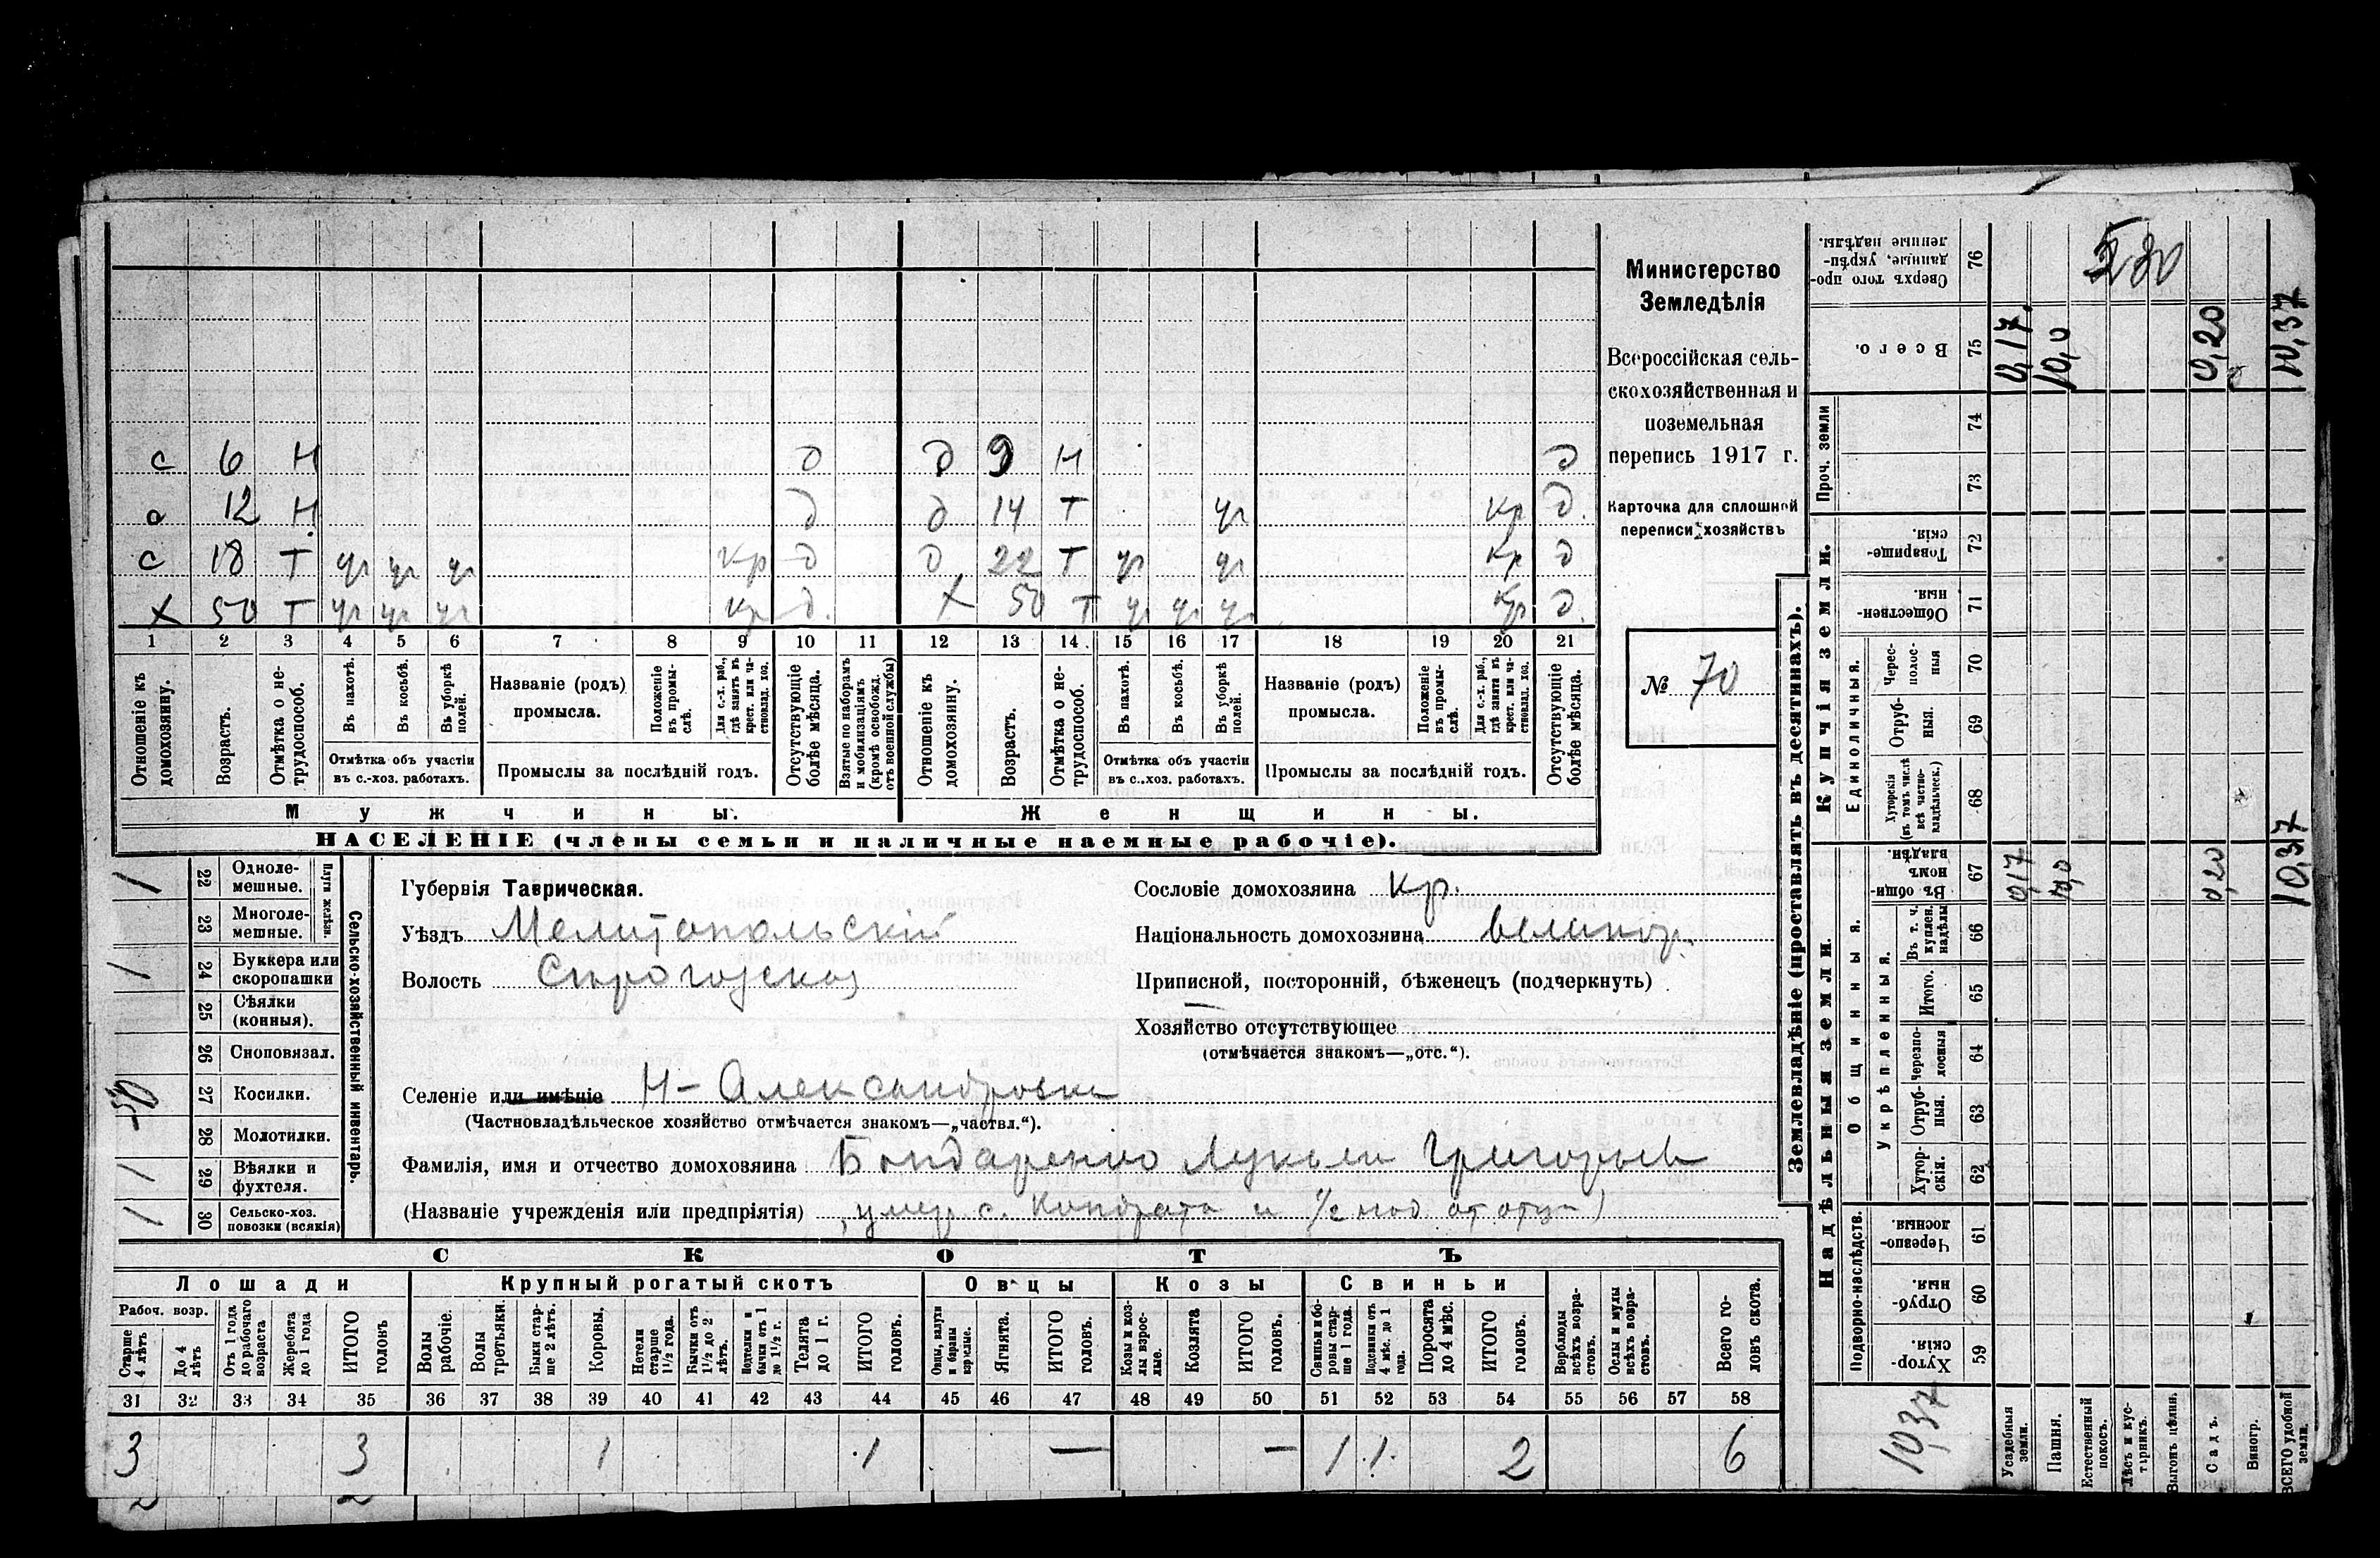 с 6 н д д 9 н д
с 12 н д д 14 т уч кр д.
с 18 т уч уч уч кр д д 22 т уч уч кр д
х 50 т уч уч уч кр д. х 50 т уч уч уч кр д.
1 2 3 4 5 6 7 8 9 10 11 12 13 14 15 16 17 18 19 20 21
Отношеніе къ домохозяину.
Возрастъ.
Отмѣтка о нетрудоспособ.
Въ пахотѣ.
Въ косьбѣ.
Въ уборкѣ полей.
Отмѣтка объ участіи
въ с.-хоз. работахъ.
Названіе (родъ)
промысла.
Положеніе въ промыслѣ.
Для с.-х. раб., гдѣ занятъ въ крест. или частновлад. хоз.
Промыслы за послѣдній годъ.
Отсутствующіе болѣе мѣсяца.
Взятые по наборамъ и мобилизаціямъ (кромѣ освобожд. отъ военной службы)
Отношеніе къ домохозяину.
Возрастъ.
Отмѣтка о нетрудоспособ.
Въ пахотѣ.
Въ косьбѣ.
Въ уборкѣ полей.
Отмѣтка объ участіи
въ с.-хоз. работахъ.
Названіе (родъ)
промысла.
Положеніе въ промыслѣ.
Для с.-х. раб., гдѣ занята въ крест. или частновлад. хоз.
Промыслы за послѣдній годъ.
Отсутствующіе болѣе мѣсяца.
Мужчины. Женщины.
НАСЕЛЕНІЕ (члены семьи и наличные наемные рабочіе).
Министерство
Земледѣлія
Всероссійская сель-
скохозяйственная и
поземельная
перепись 1917 г.
Карточка для сплошной
переписи хозяйствъ
№ 70
1 22 Одноле-
мешные.
23 Многоле-
мешные.
Плуги желѣзн.
1 24 Буккера или
скоропашки
25 Сѣялки
(конныя).
26 Сноповязал.
27 Косилки.
28 Молотилки.
1 29 Вѣялки и
фухтеля.
1 30 Сельско-хоз.
повозки (всякія)
Сельско-хозяйственный инвентарь.
Губернія Таврическая.
Уѣздъ Мелитопольскій
Волость Сѣрогозская
Селеніе или имѣніе Н-Александровка
(Частновладѣльческое хозяйство отмѣчается знакомъ—„частвл.“).
Фамилія, имя и отчество домохозяина Бондаренко Лукьян Григорьев
(Названіе учрежденія или предпріятія) (умер. с. Кондрата и 1/2 над от отца)
Сословіе домохозяина кр.
Національность домохозяина великор.
Приписной, посторонній, бѣженецъ (подчеркнуть)
Хозяйство отсутствующее
(отмѣчается знакомъ—„отс.“).
СКОТЪ
Лошади Крупный рогатый скотъ Овцы Козы Свиньи
Рабоч. возр.
Старше 4 лѣтъ
До 4 лѣтъ
Отъ 1 года до рабочаго возраста
Жеребята до 1 года
ИТОГО головъ
Волы рабочіе.
Волы третьяки.
Быки старше 2 лѣтъ.
Коровы.
Нетели старше 1½ года.
Бычки отъ 1½ до 2 лѣтъ.
Подтелки и бычки отъ 1 до 1½ г.
Телята до 1 г.
ИТОГО головъ.
Овцы, валухи и бараны взрослые.
Ягнята.
ИТОГО головъ.
Козы и козлы взрослые.
Козлята
ИТОГО головъ.
Свиньи и боровы старше 1 года.
Подсвинки отъ 4 мѣс. до 1 года.
Поросята до 4 мѣс.
ИТОГО головъ.
Верблюды всѣхъ возрастовъ.
Ослы и мулы всѣхъ возрастовъ.
Всего головъ скота.
31 32 33 34 35 36 37 38 39 40 41 42 43 44 45 46 47 48 49 50 51 52 53 54 55 56 57 58
3 3 1 1 — — 1 1 2 6
Землевладѣніе (проставлять въ десятинахъ).
Надѣльныя земли. Купчія земли. Проч. земли
Подворно-наслѣдств. Общинныя. Укрѣпленныя. Единоличныя.
Хуторскія. 59
Отрубныя. 60
Черезполосныя. 61
Хуторскія. 62
Отрубныя. 63
Черезполосныя 64
Итого. 65
Въ т. ч. куплен. надѣлы 66
Въ общинномъ владѣн. 67
Хуторскія (въ томъ числѣ всѣ частновладѣльческ.) 68
Отрубныя. 69
Чересполосныя 70
Общественныя. 71
Товарищескія. 72
73
74
Всего. 75
Сверхъ того проданные, укрѣпленные надѣлы. 76
10,37
Усадебныя земли. 0,17 0,17.
Пашня. 10,0 10,0
Естественный покосъ.
Лѣсъ и кустарникъ.
Выгонъ цѣлин.
Садъ. 0,20 0,20
Виногр.
ВСЕГО удобной земли. 10,37 10,37